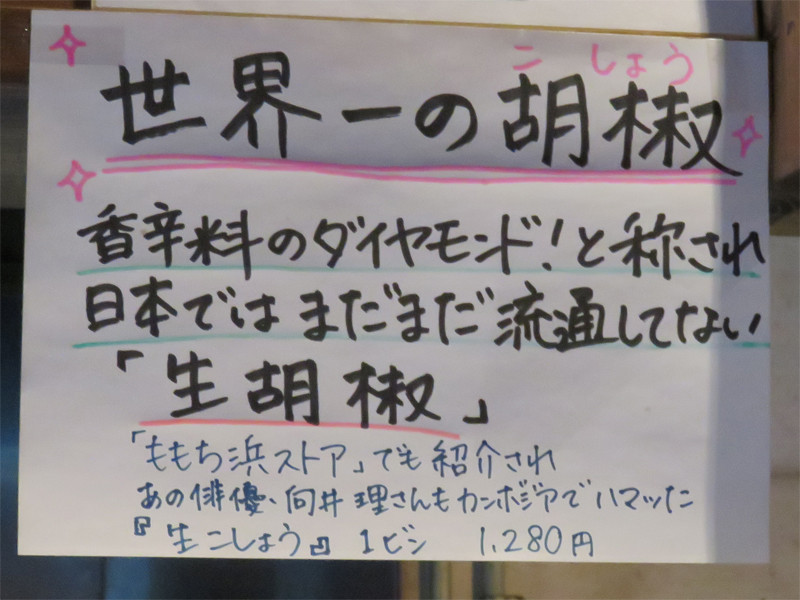 こしょう
世界一の胡椒
香辛料のダイヤモンド!と称され
日本ではまだまだ流通してない
「生胡椒」
「ももち浜ストア」でも紹介され
あの俳優、向井理さんもカンボジアでハマッた
『生こしょう』 1ビン 1,280円